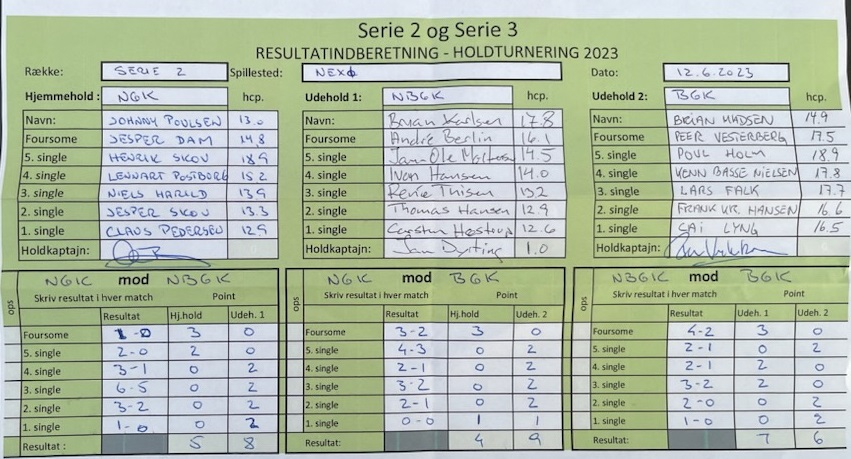 Serie 2 og Serie 3
RESULTATINDBERETNING - HOLDTURNERING 2023
Række: SERIE 2 Spillested: NEXØ Dato: 12.6.2023
Hjemmehold : NGK hcp. Udehold 1: NBGK hcp. Udehold 2: BGK hcp.
Navn: JOHNNY POULSEN 13.0 Navn: Bryan Karlsen 17.8 Navn: BRIAN MADSEN 14.9
Foursome JESPER DAM 14,8 Foursome André Berlin 16.1 Foursome PEER VESTERBERG 17.5
5. single HENRIK SKOV 18,9 5. single Jan Ole 14.5 5. single POUL HOLM 18.9
4. single LENNART POSTBORG 15,2 4. single Ivan Hansen 14.0 4. single KENN BASSE NIELSEN 17.8
3. single NIELS HARILD 13,9 3. single René Thisen 13,2 3. single LARS FALK 17.7
2. single JESPER SKOV 13.3 2. single Thomas Hansen 12.9 2. single FRANK VR. HANSEN 16.6
1. single CLAUS PEDERSEN 12,9 1. single Carsten Høstrup 12.6 1. single CAI LYNG 16.5
Holdkaptajn: Holdkaptajn: Jan Dysting 1.0 Holdkaptajn:
NGK mod NBGK NGK mod BGK NBGK mod BGK
ops Skriv resultat i hver match Point ops Skriv resultat i hver match Point ops Skriv resultat i hver match Point
Resultat Hj.hold Udeh. 1 Resultat Hj.hold Udeh. 2 Resultat Udeh. 1 Udeh. 2
Foursome 1-0 3 0 Foursome 3-2 3 0 Foursome 4-2 3 0
5. single 2-0 2 0 5. single 4-3 0 2 5. single 2-1 0 2
4. single 3-1 0 2 4. single 2-1 0 2 4. single 2-1 2 0
3. single 6-5 0 2 3. single 3-2 0 2 3. single 3-2 2 0
2. single 3-2 0 2 2. single 2-1 0 2 2. single 2-0 0 2
1. single 1-0 0 2 1. single 0-0 1 1 1. single 1-0 0 2
Resultat : 5 8 Resultat: 4 9 Resultat: 7 6